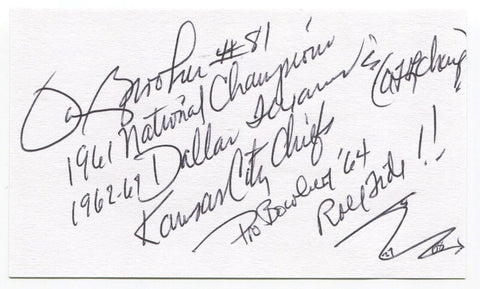 Brooker #81
1961 National Champions
1962-67 Dallas Texans
Kansas City Chiefs
Pro Bowler '64
Roll Tide!!